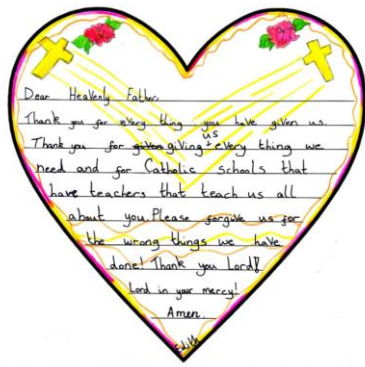 Dear Heavenly Father,
Thank you for every thing you have given us.
Thank you for given giving us every thing we
need and for Catholic schools that
have teachers that teach us all
about you. Please forgive us for
the wrong things we have
done! Thank you Lord!
Lord in your mercy!
Amen.
Edith